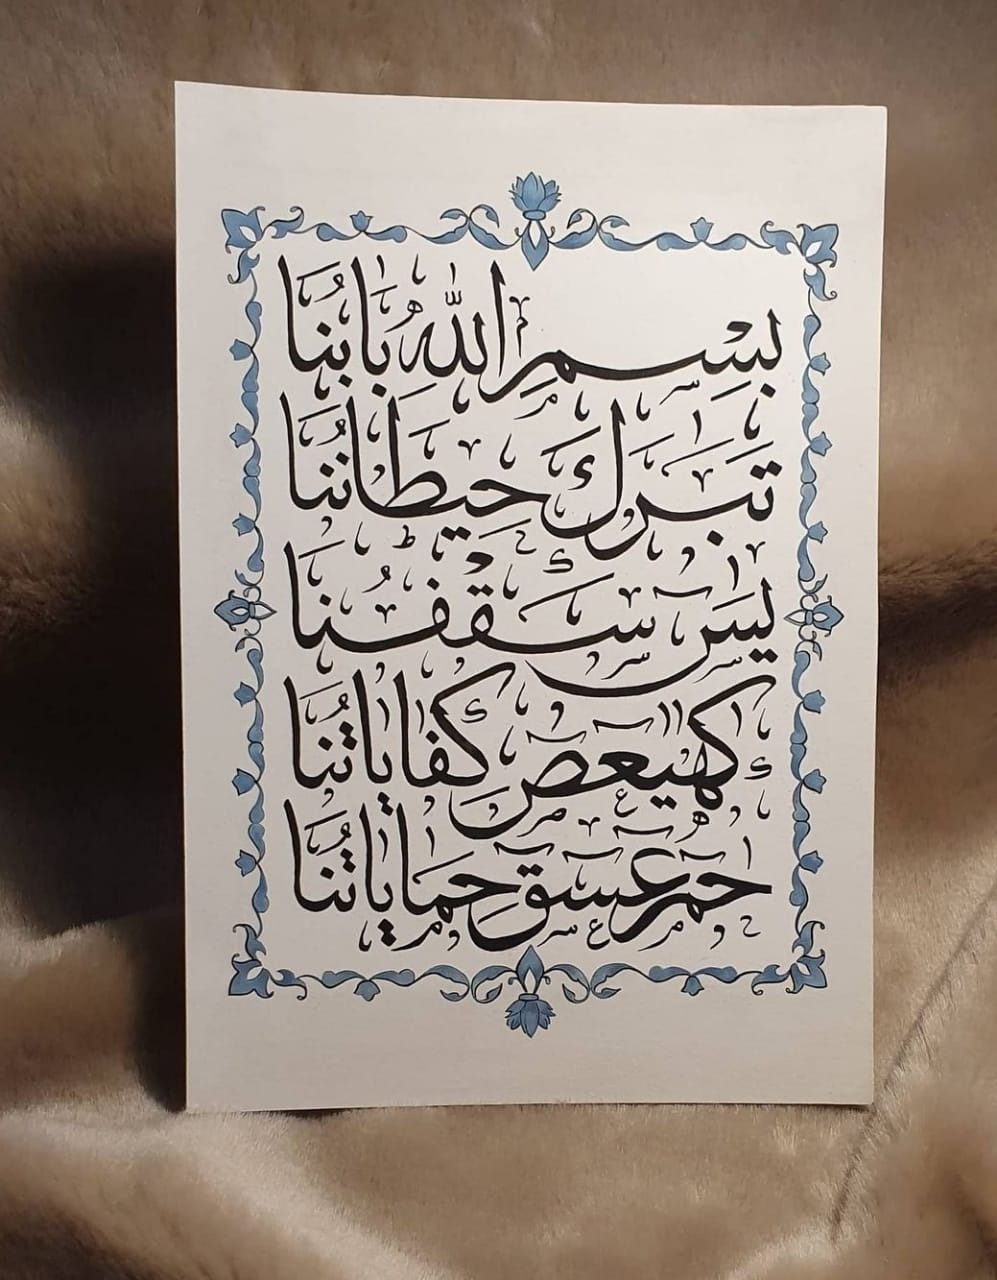 بِسْمِ اللّٰهِ بَابُنَا
تَبَرَكَ حِيطَانُنَا
يٰسٓ سَقْفُنَا
كهيعص كِفَايَاتُنَا
حمعسق حِمَايَاتُنَا